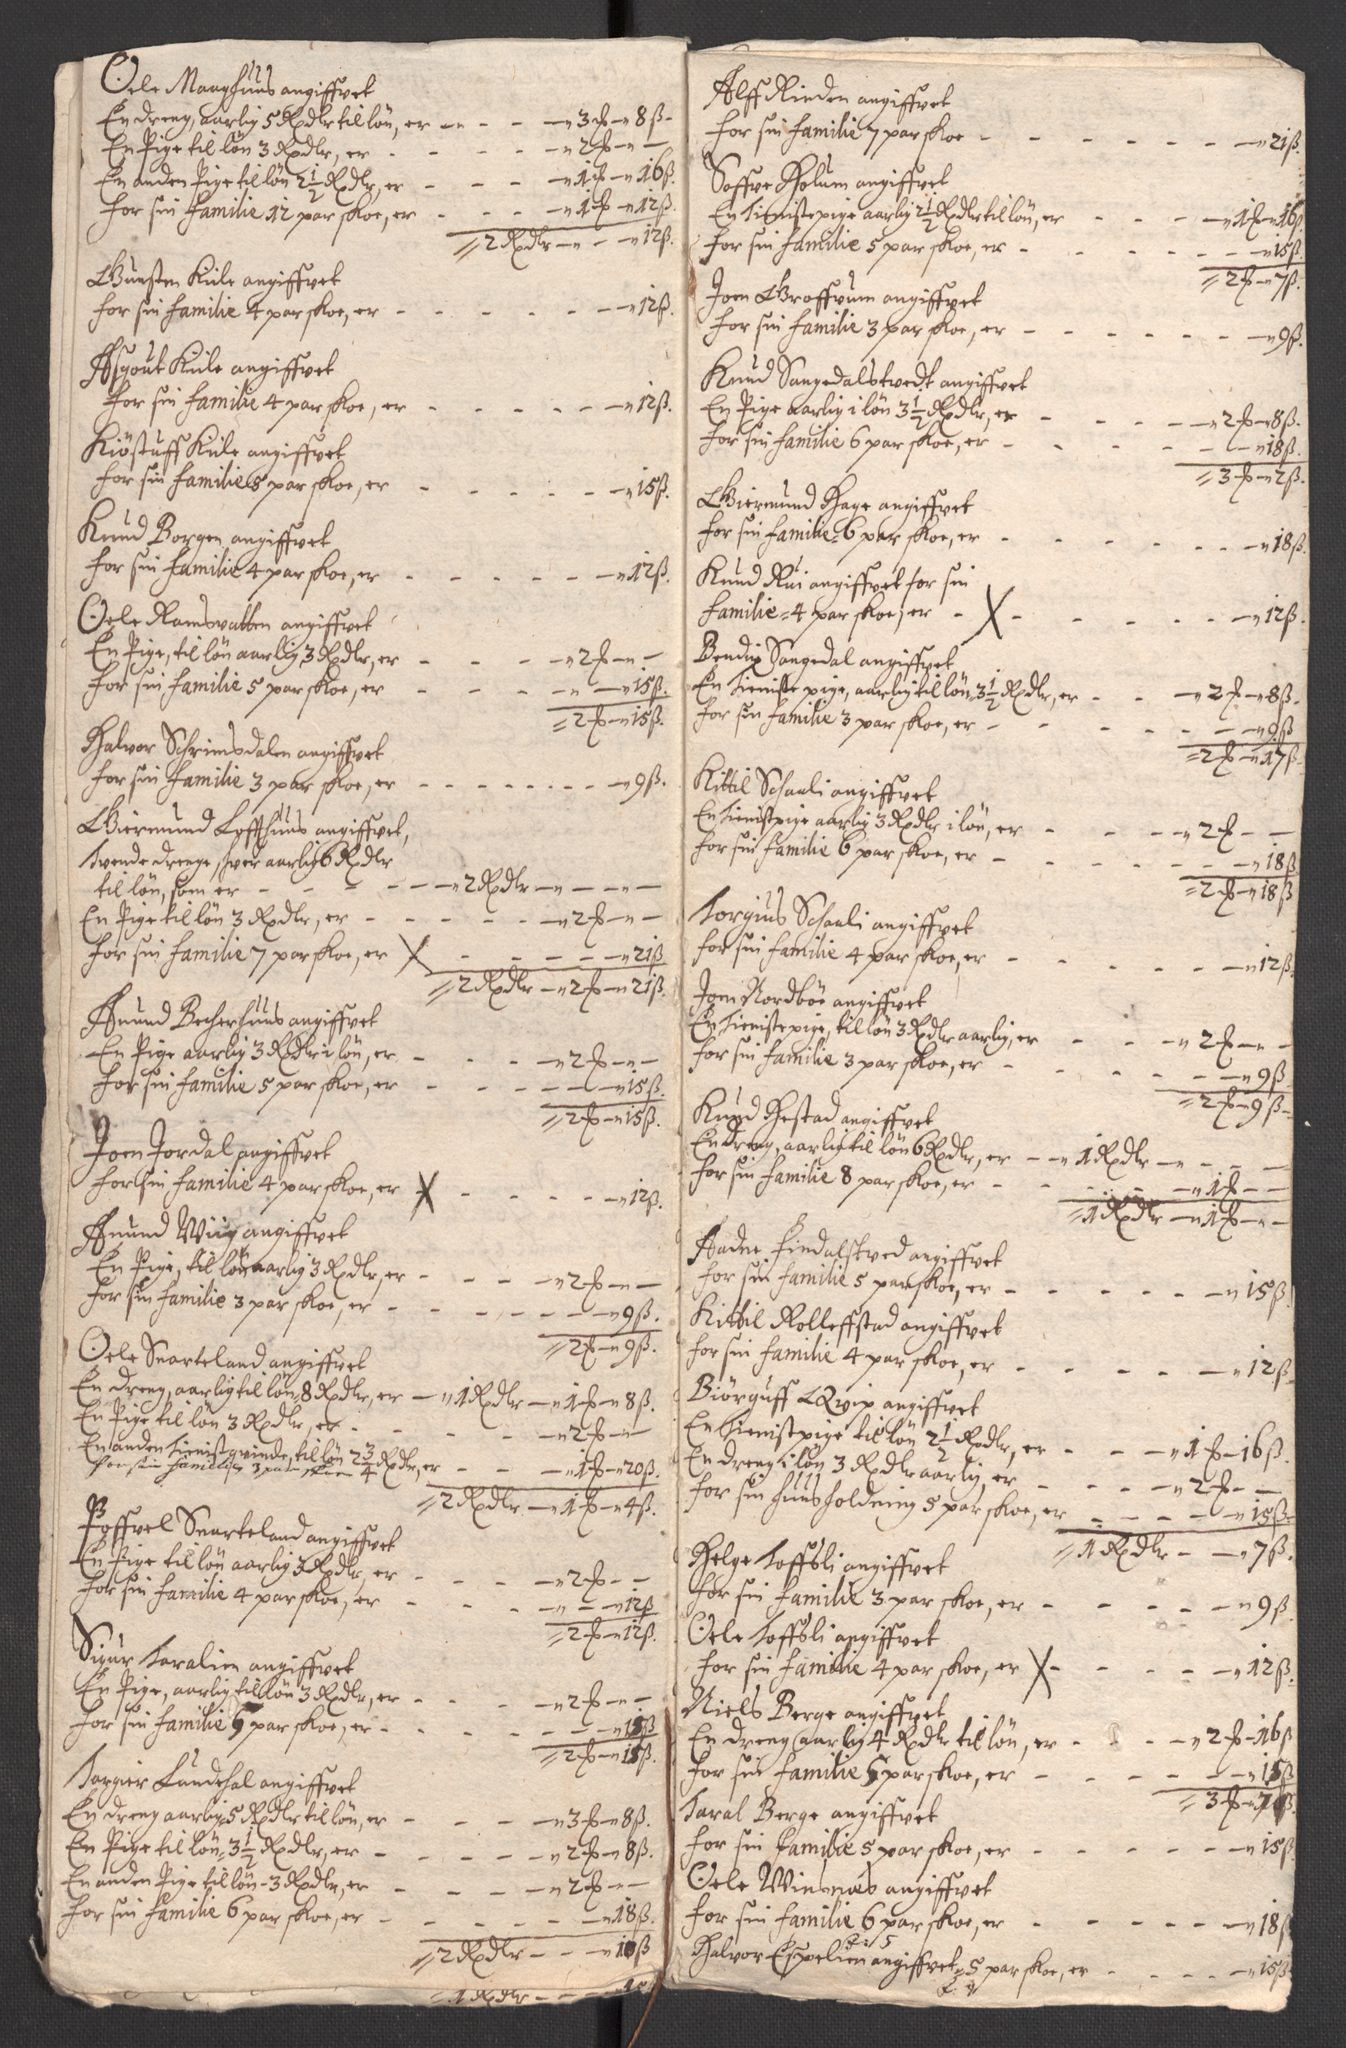 Oele Maaghuus angiffvet
En dreng, aarlig 5 Rxdlr til løn, er - - - „3 ƒ „8ß
En Pige til løn 3 Rxdlr, er - - - „2 ƒ „ -
En anden Pige til løn 2½ Rxdlr, er - - - „1 ƒ „16ß.
for sin familie 12 par skoe, er - - - „1 ƒ „12ß.
„2 Rxdlr „ - „12ß.
Gunsten Kiile angiffvet
for sin familie 4 par skoe, er - - - „12ß.
Asgout Kiile angiffvet
for sin familie 4 par skoe, er - - - „12ß.
Kiöstuff Kiile angiffvet
for sin familie 5 par skoe, er - - - „15ß.
Knud Borgen angiffvet
for sin familie 4 par skoe, er - - - „12ß.
Oele Ramsvatten angiffvet
En Pige, til løn aarlig 3 Rxdlr, er - - - „2 ƒ „ -
for sin familie 5 par skoe, er - - - „15ß.
„2 ƒ „15ß.
Halvor Schrimsdalen angiffvet
for sin familie 3 par skoe, er - - - „9ß.
Giermund Loffthuus angiffvet,
Tvende drenge, hver aarlig 6 Rxdlr
til løn, som er - - - „2 Rxdlr „ - „ -
En Pige til løn 3 Rxdlr, er - - - „2 ƒ „ -
for sin familie 7 par skoe, er X - - - „21ß
„2 Rxdlr „2 ƒ „21ß.
Anund Becherhuus angiffvet
En Pige aarlig 3 Rxdlr i løn, er - - - „2 ƒ „ -
for sin familie 5 par skoe, er - - - „15ß.
„2 ƒ „15ß.
Joen Jordal angiffvet
for sin familie 4 par skoe, er X - - - „12ß.
Anund Wiig angiffvet
En Pige, til løn aarlig 3 Rxdlr, er - - - „2 ƒ „ -
for sin familie 3 par skoe, er - - - „9ß.
„2 ƒ „9ß.
Oele Snarteland angiffvet
En dreng, aarlig til løn 8 Rxdlr, er - „1 Rxdlr „1 ƒ „8ß.
En Pige til løn 3 Rxdlr, er - - - „2 ƒ „ -
En anden tienistqvinde, til løn 2¾ Rxdlr, er - - „1 ƒ „20ß.
for sin familie 3 par skoen
„2 Rxdlr „1 ƒ „4ß.
Poffvel Snarteland angiffvet
En Pige til løn aarlig 3 Rxdlr, er - - - „2 ƒ - -
for sin familie 4 par skoe, er - - - „12ß
„2 ƒ „12ß.
Sigur Taralien angiffvet
En Pige, aarlig til løn 3 Rxdlr, er - - - „2 ƒ „ -
for sin familie 5 par skoe, er - - - „15ß
„2 ƒ „15ß.
Torgier Lundehal angiffvet
En dreng aarlig 5 Rxdlr til løn, er - - - „3 ƒ „8ß.
En Pige til løn 3½ Rxdlr, er - - - „2 ƒ „8ß.
En anden Pige til løn 3 Rxdlr, er - - - „2 ƒ - -
for sin familie 6 par skoe, er - - - „18ß.
„2 Rxdlr - - „10ß
„1 Rxdlr
Alff Rinden angiffvet
for sin familie 7 par skoe - - - „21ß.
Soffve Holum angiffvet
En tienistepige aarlig 2½ Rxdlr til løn, er - - - „1 ƒ „16ß
for sin familie 5 par skoe, er - - - „15ß.
„2 ƒ „7ß.
Joen Groffvum angiffvet
for sin familie 3 par skoe, er - - - „9ß.
Knud Sangedalstvedt angiffvet
En Pige aarlig i løn 3½ Rxdlr, er - - - „2 ƒ „8ß.
for sin familie 6 par skoe, er - - - „18ß.
„3 ƒ „2ß.
Giermund Hage angiffvet
for sin familie 6 par skoe, er - - - „18ß.
Knud Rui angiffvet for sin
familie 4 par skoe, er - X - - - „12ß.
Bendix Sangedal angiffvet
En tieniste pige, aarlig til løn 3½ Rxdlr, er - - - „2 ƒ „8ß.
for sin familie 3 par skoe, er - - - „9ß
„2 ƒ „17ß
Kittil Schaali angiffvet
En tienistpige aarlig 3 Rxdlr i løn, er - - - „2 ƒ - -
for sin familie 6 par skoe, er - - - „18ß
„2 ƒ „18ß
Torgius Schaali angiffvet
for sin familie 4 par skoe, er - - - „12ß.
Joen Nordböe angiffvet
En tienistepige, til løn 3 Rxdlr aarlig, er - - - „2 ƒ „ -
for sin familie 3 par skoe, er - - - „9ß
„2 ƒ „9ß
Knud Hestad angiffvet
En dreng, aarlig til løn 6 Rxdlr, er - „1 Rxdlr „ - -
for sin familie 8 par skoe, er - - - „1 ƒ - -
„1 Rxdlr „1 ƒ „ -
Aadne Findalstved angiffvet
for sin familie 5 par skoe, er - - - „15ß.
Kittil Rolleffstad angiffvet
for sin familie 4 par skoe, er - - - „12ß.
Biörguff Qvip angiffvet
En tienistpige til løn 2½ Rxdlr, er - - - „1 ƒ 16ß.
En dreng i løn 3 Rxdlr aarlig, er - - - „2 ƒ - -
for sin huusholdning 5 par skoe, er - - - „15ß.
„1 Rxdlr - „7ß.
Helge Toffsli angiffvet
for sin familie 3 par skoe, er - - - „9ß.
Oele Toffsli angiffvet
for sin familie 4 par skoe, er X - - - „12ß.
Niels Berge angiffvet
En dreng aarlig 4 Rxdlr til løn, er - - - „2 ƒ 16ß
for sin familie 5 par skoe, er - - - „15ß
„3 ƒ „7ß.
Taral Berge angiffvet
for sin familie 5 par skoe, er - - - „15ß.
Oele Winsnæs angiffvet
for sin familie 6 par skoe, er - - - „18ß
Halvor Espelien angiffvet 5 par skoe, er - - - „15ß